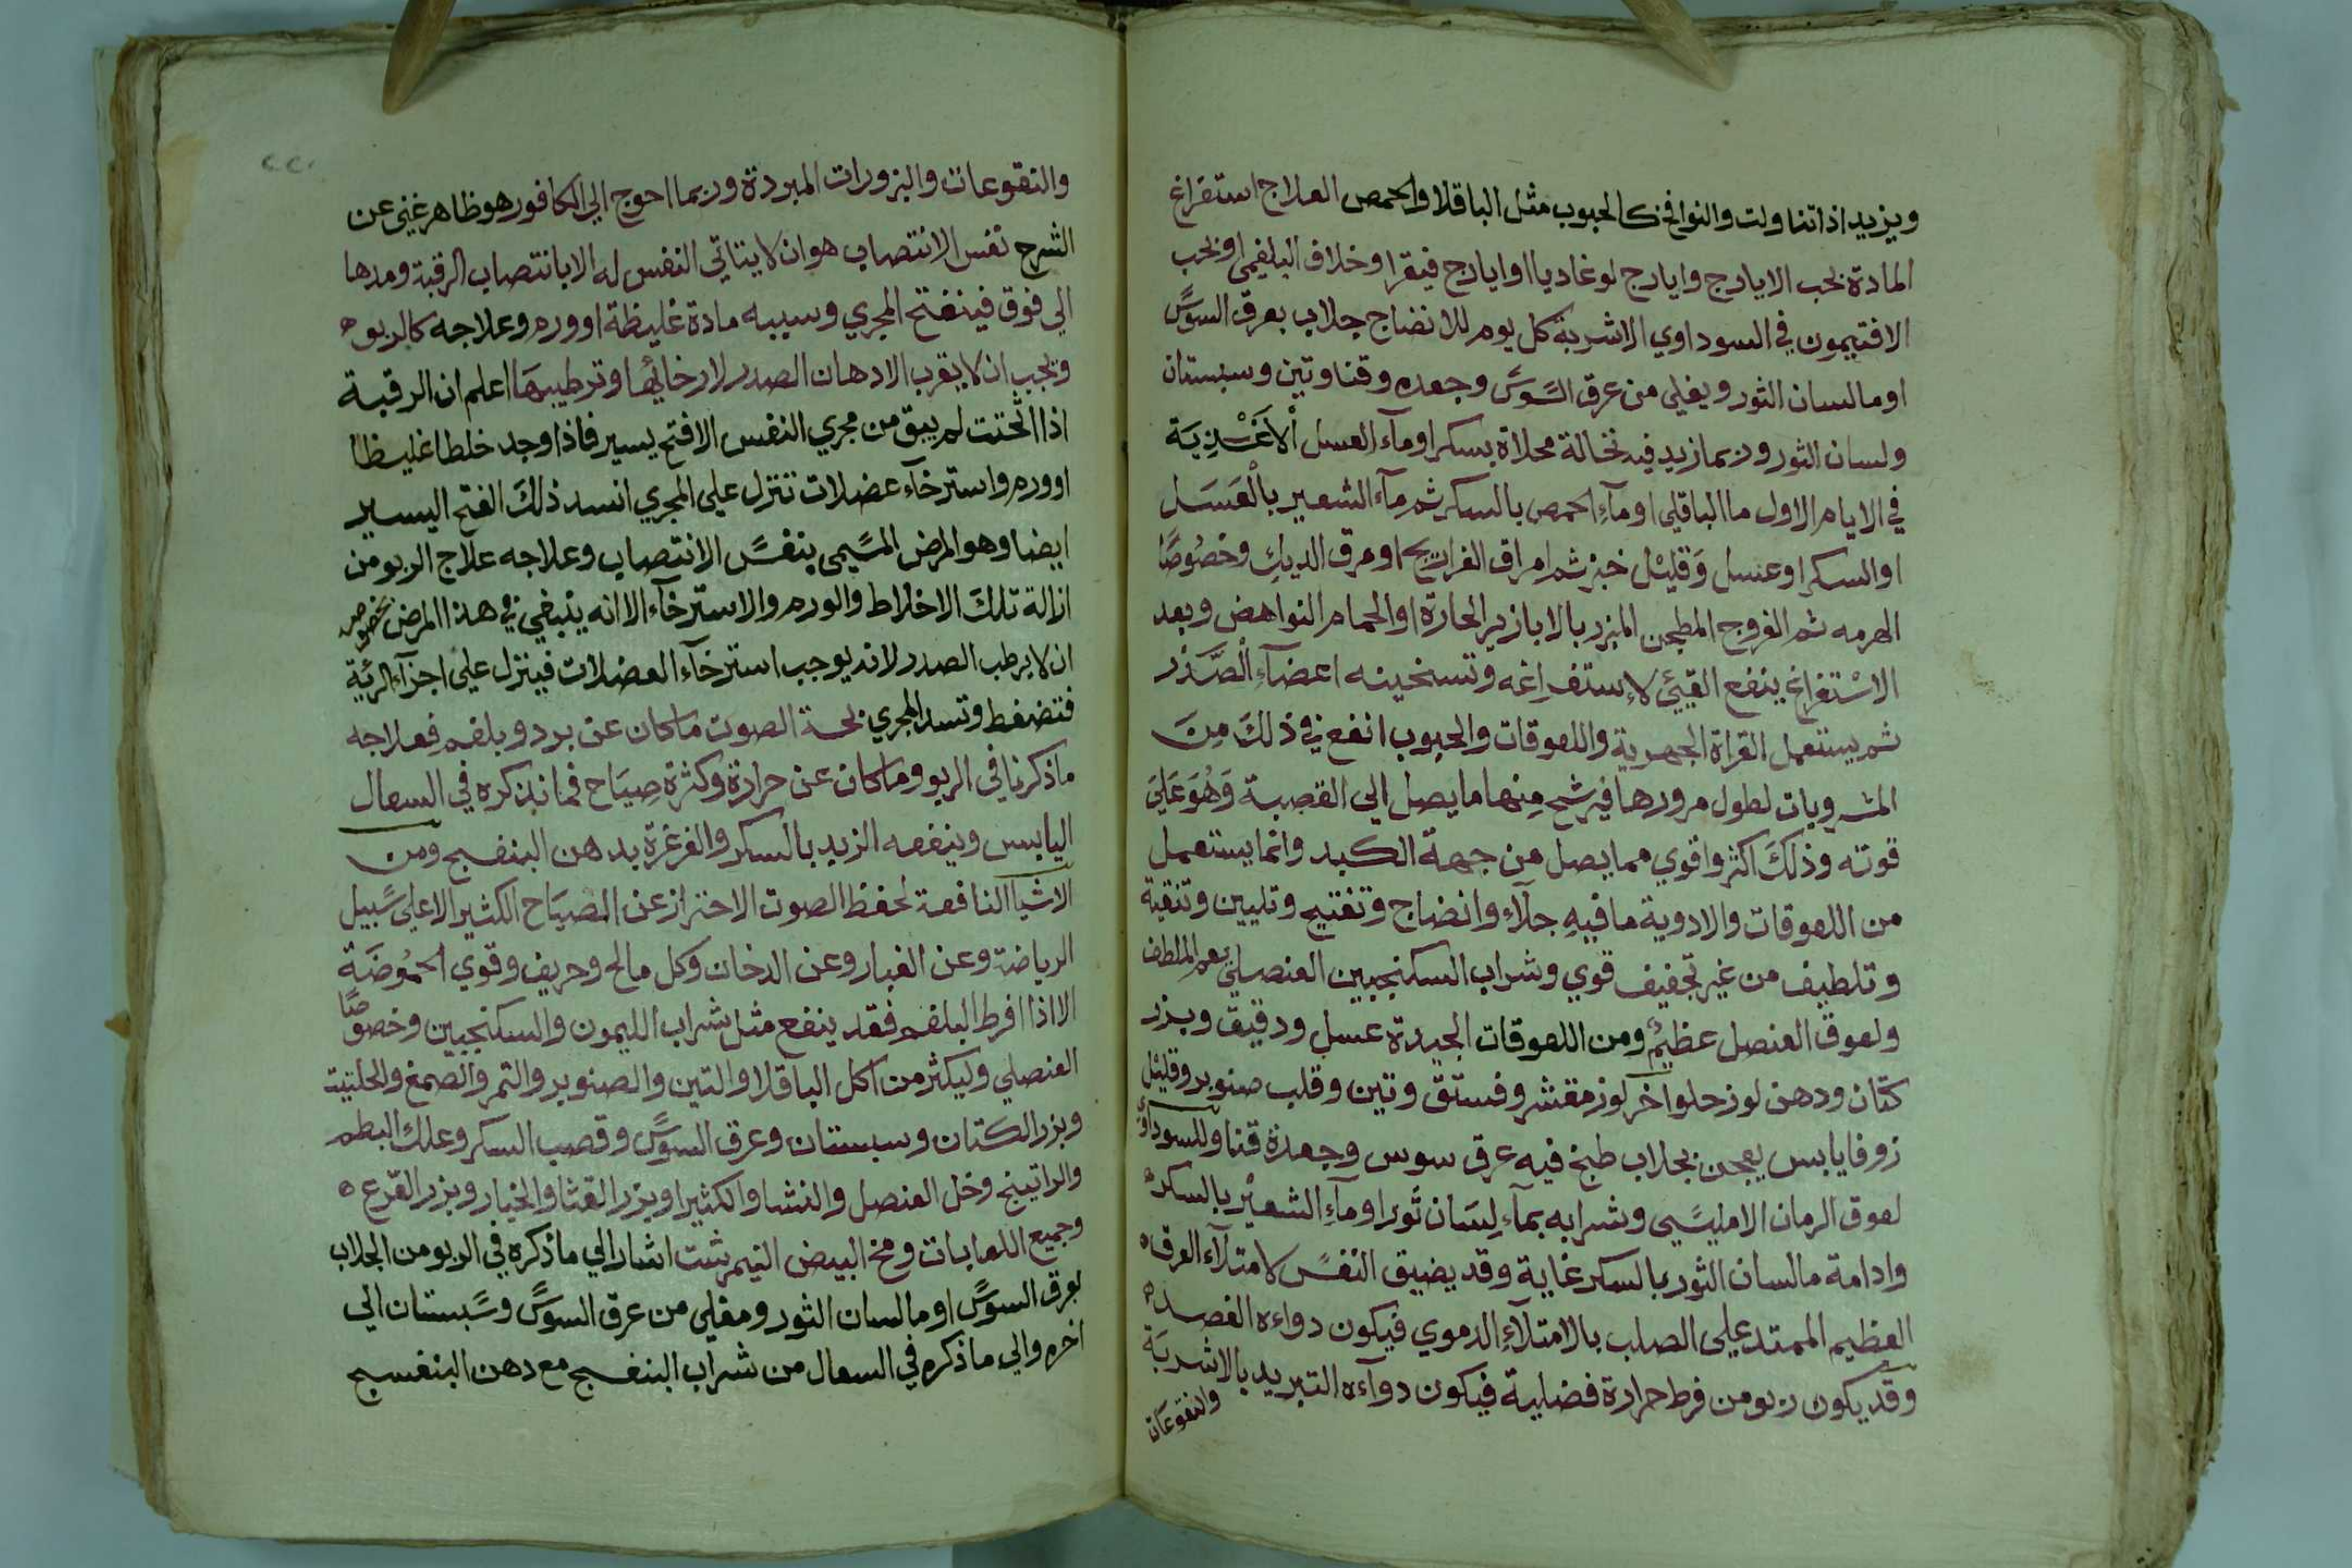 ويزيد اذا تناولت والنوافخ كالحبوب مثل الباقلا والحمص العلاج استفراغ
المادة بحب الايارج وايارج لوغاديا او ايارج فيقرا وخلاف البلغمي او بحب
الافتيمون في السوداوي الاشربة كل يوم للانضاج جلاب بعرق السوس
او ما لسان الثور ويغلي من عرق السوس وجعده وقنا وتين وسبستان
ولسان الثور وربما زيد فيه نخالة محلاة بسكر او مآء العسل الاغذية
في الايام الاول ما الباقلي او مآء الحمص بالسكر ثم مآء الشعير بالعسل
او السكر او عسل وقليل خبز ثم امراق الفراريج او مرق الديك وخصوصا
الهرمه ثم الفروج المطجن المبزر بالابازير الحارة او الحمام النواهض وبعد
الاستفراغ ينفع القيئ لاستفراغه وتسخينه اعضآء الصدر
ثم يستعمل القراة الجهرية واللعوقات والحبوب انفع في ذلك من
المشروبات لطول مرورها فيرشح منها ما يصل الي القصبة وهو علي
قوته وذلك اكثر واقوي مما يصل من جهة الكبد وانما يستعمل
من اللعوقات والادوية ما فيه جلآء وانضاج وتفتيح وتليين وتنقية
وتلطيف من غير تجفيف قوي وشراب السكنجبين العنصلي نعم الملطف
ولعوق العنصل عظيم ومن اللعوقات الجيدة عسل ودقيق وبزر
كتان ودهن لوز حلو اخر لوز مقشر وفستق وتين وقلب صنوبر وقليل
زوفا يابس يعجن بجلاب طبخ فيه عرق سوس وجعدة قنا وللسوداوي
لعوق الرمان الامليسي وشرابه بمآء لسان ثور او مآء الشعير بالسكر ه
وادامة ما لسان الثور بالسكر غاية وقد يضيق النفس لامتلآء العرق ه
العظيم الممتد علي الصلب بالامتلآء الدموي فيكون دواءه الفصد ه
وقد يكون ربو من فرط حرارة فضلية فيكون دوآءه التبريد بالاشربة
والنقوعات
٢٢٠
والنقوعات والبزورات المبردة وربما احوج الي الكافور هو ظاهر غني عن
الشرح نفس الانتصاب هو ان لا يتاتي النفس له الا بانتصاب الرقبة ومدها
الي فوق فينفتح المجري وسببه مادة غليظة او ورم وعلاجه كالربو ه
ويجب ان لا يقرب الادهان الصدر لارخائها وترطيبها اعلم ان الرقبة
اذا انحنت لم يبق من مجري النفس الا فتح يسير فاذا وجد خلطا غليظا
او ورم واسترخآء عضلات تنزل علي المجري انسد ذلك الفتح اليسير
ايضا وهو المرض المسمي بنفس الانتصاب وعلاجه علاج الربو من
ازالة تلك الاخلاط والورم والاسترخآء الا انه ينبغي في هذا المرض بخصوصه
ان لا يرطب الصدر لانه يوجب استرخآء العضلات فينزل علي اجزآء الرئية
فتضغط وتسد المجري بحة الصوت ما كان عن برد وبلغم فعلاجه
ما ذكرنا في الربو وما كان عن حرارة وكثرة صياح فما نذكره في السعال
اليابس وينفعه الزبد بالسكر والغرغرة بدهن البنفسج ومن
الاشيا النافعة لحفظ الصوت الاحتراز عن الصياح الكثير الا علي سبيل
الرياضة وعن الغبار وعن الدخان وكل مالح وحريف وقوي الحموضة
الا اذا افرط البلغم فقد ينفع مثل شراب الليمون والسكنجبين وخصوصا
العنصلي وليكثر من اكل الباقلا والتين والصنوبر والتمر والصمغ والحلتيت
وبزر الكتان وسبستان وعرق السوس وقصب السكر وعلك البطم
والراتينج وخل العنصل والنشا والكثيرا وبزر القثا والخيار وبزر القرع ه
وجميع اللعابات ومخ البيض النيمرشت اشار الي ما ذكره في الربو من الجلاب
بعرق السوس او ما لسان الثور ومغلي من عرق السوس وسبستان الي
اخره والي ما ذكره في السعال من شراب البنفسج مع دهن البنفسج